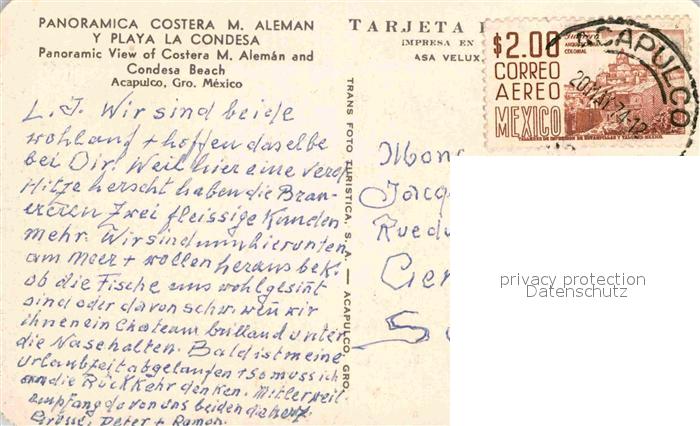 PANORAMICA COSTERA M. ALEMAN
Y PLAYA LA CONDESA
Panoramic View of Costera M. Alemán and
Condesa Beach
Acapulco, Gro. México
L. J. Wir sind beide
wohlauf + hoffen daselbe
bei Dir. Weil hier eine
Hitze herscht haben die Brau-
ereien zwei fleissige Kunden
mehr. Wir sind nun hier unten
am Meer + wollen heraus bek.
ob die Fische uns wohlgesint
sind oder davon schw. wen wir
ihnen ein Chateau brilland unter
die Nase halten. Bald ist meine
Urlaubzeit abgelaufen + so muss ich
an die Rückkehr denken. Mitlerweil
empfang da von uns beiden die herz.
Grüsse, Peter + Ramon.
TRANS FOTO TURISTICA, S. A. — ACAPULCO, GRO.
TARJETA
IMPRESA EN
ASA VELUX,
$2.00
CORREO
AEREO
MEXICO
ARQ
COLONIAL
ACAPULCO
Mon
Jacq
Rue du
Gen
privacy protection
Datenschutz